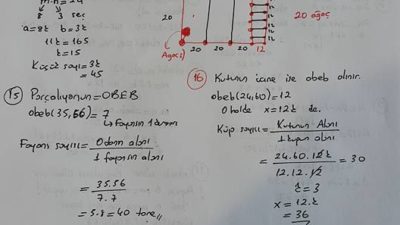 m.n = 24
8 3 sec
a = 8t b = 3t
11t = 165
t = 15
Küçük sayı = 3t
= 45
20
20 20 20 12
20 ağaç
15 Parçalıyorum = OBEB
obeb(35,56) = 7
Fayansın 1 kenarı
Fayans sayısı = Odanın alanı
1 fayansın alanı
= 35.56
7.7
= 5.8 = 40 tane
16 Kutunun içine ise obeb alınır.
obeb(24,60) = 12
O halde x = 12t dir.
Küp sayısı = Kutunun Alanı
1 küpün alanı
= 24.60.12t = 30
12.12.12
t = 3
x = 12.t
= 36